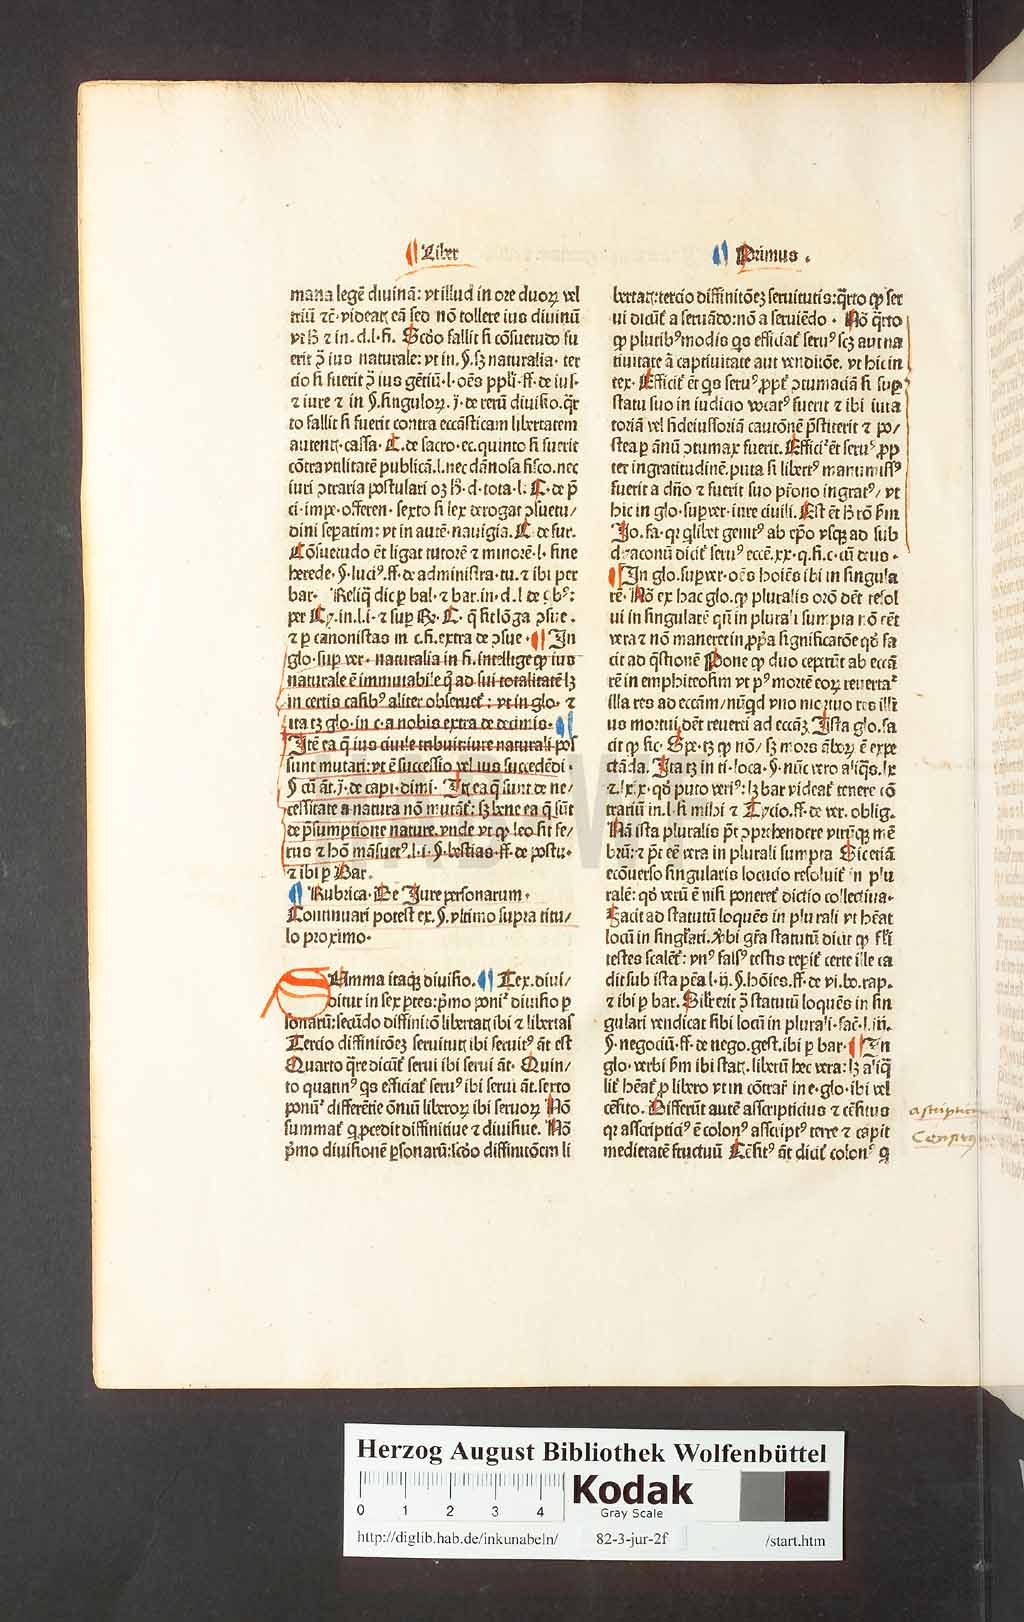 Liber
Primus .
mana legē diuinā: vt illud in ore duoꝝ vel
triū ⁊c̄· videat eā sed nō tollere ius diuinū
vt ⁊ in· d· l· fi· Scd̄o fallit si cōsuetudo fu
erit ↄ̄ ius naturale: vt in· §· sꝫ naturalia· ter
cio si fuerit ↄ̄ ius gētiū· l· oēs ppl̓i· ff· de ius·
⁊ iure ⁊ in §· singuloꝝ· j̄· de rerū diuisio· q̄r
to fallit si fuerit contra eccāsticam libertatem
autent· cassa· C· de sacro· ec· quinto si fuerit
cōtra vtilitatē publicā· l· nec dānosa fisco· nec
iuri ↄtraria postulari oꝫ · d· tota· l· C· de p̄
ci· impe· offeren· sexto si lex derogat ↄsuetu/
dini sepatim: vt in autē· nauigia· C· de fur·
Cōsuetudo ēt ligat tutorē ⁊ minorē· l· sine
herede· §· luciꝰ· ff· de administra· tu· ⁊ ibi per
bar· Reliq̄ dic ꝑ bal· ⁊ bar· in· d· l de
per Cy· in· l· i· ⁊ sup C· q̄ sit lōga ↄsue·
⁊ ꝑ canonistas in c· fi· extra de ↄsue· In
glo· sup ver· naturalia in fi· intellige ꝙ ius
naturale ē immutabile q̄ ad sui totalitatē lꝫ
in certis casibꝰ aliter obseruet̄: vt in glo· ⁊
ita tꝫ glo· in c· a nobis extra de decimis·
Itē ea q̄ ius ciuile tribuit iure naturali pos
sunt mutari: vt ē successio vel ius succedēdi·
§ cū āt· j̄· de capi· dimi· Itꝫ ea q̄ sunt de ne/
cessitate a natura nō mutāt̄: sꝫ bene ea q̄ sūt
de p̄sumptione nature· vnde vt ꝙ leo sit fe/
rus ⁊ hō māsuetꝰ· l· i· §· bestias· ff· de postu·
⁊ ibi ꝑ Bar·
Rubrica· De Iure personarum·
Continuari potest ex· §· vltimo supra titu/
lo proximo·
SUmma itaqꝫ diuisio· Tex· diui/
ditur in sex ptes: pͥmo poniͭ diuisio ꝑ
sonarū: secūdo diffinitiō libertat ibi ⁊ libertas
Tercio diffinitōeꝫ seruitut ibi seruitꝰ āt est
Quarto q̄re dicūt̄ serui ibi serui āt· Quin/
to quatinꝰ qs efficiat̄ seruꝰ ibi serui āt· sexto
ponūͭ differētie ōniū liberoꝝ ibi seruoꝝ Nō
summat̄ q ꝓcedit diffinitiue ⁊ diuisiue· Nō
pͥmo diuisionē ꝑsonarū: scd̄o diffinitōem li
bertat: tercio diffinitōeꝫ seruitutis: q̄rto ꝙ ser
ui dicūt̄ a seruādo: nō a seruiēdo· Nō q̄rto
ꝙ pluribꝰ modis qs efficiat̄ seruꝰ sꝫ aut na
tiuitate a captiuitate aut vendicōe· vt hic in
tex· Efficit̄ ēt qs seruꝰ ꝓpt̓ ↄtumaciā si sup
statu suo in iudicio vocatꝰ fuerit ⁊ ibi iura
toriā vel fideiussoriā cautōnē p̄stiterit ⁊ po/
stea ꝑ ānū ↄtumax fuerit· Efficiͭ ēt seruꝰ ꝓp
ter ingratitudinē· puta si libertꝰ manumissꝰ
fuerit a dn̄o ⁊ fuerit suo pr̄ono ingratꝰ/ vt
hic in glo· sup ver· iure ciuili· Est ēt
Io· fa· qꝛ qlibet genitꝰ ab ep̄o vsqꝫ ad sub
dyaconū dicit̄ seruꝰ eccē· xx· q· fi· c· cū deus·
In glo· sup ver· oēs hoiēs ibi in singula
rē· Nō ex hac glo· ꝙ pluralis orō det resol
ui in singularē qn̄ in plurali sumpta nō
vera ⁊ nō maneret in ꝓpͥa significatōe qd̓ fa
cit ad q̄stionē Pone ꝙ duo ceperūt ab eccā
rē in emphiteosim vt pꝰ mortē eoꝝ reuertaͭ
illa res ad eccām/ nūqd vno mortuo res illi
us mortui det reuerti ad eccāꝫ Ista glo· fa
cit ꝙ sic· Spe· tꝫ ꝙ nō/ sꝫ mors āboꝝ ē expe
ctāda· Ita tꝫ in ti· loca· §· nūc vero aliqs· lx
⁊ lxix· qd̓ puto veriꝰ: lꝫ bar videat̄ tenere cō
trariū in· l· si mihi ⁊ Tycio· ff· de ver· oblig·
Nā ista pluralis pt̄ ↄprehendere vtrūqꝫ mē
brū: ⁊ pt̄ eē vera in plurali sumpta Sic etiā
ecōuerso singularis locucio resoluit̄ in plu
ralē: qd̓ verū ē nisi poneret̄ dictio collectiua·
Facit ad statutū loquēs in plurali vt hēat
locū in singl̓ari· Ubi gr̄a statutū dicit ꝙ
testes scalēt̄: vnꝰ falsꝰ testis repit̄ certe ille ca
dit sub ista pēa l· ij̄· §· hōies· ff· de vi· bo· rap·
⁊ ibi ꝑ bar· Sil̓r erit ↄ̄ statutū loquēs in sin
gulari vendicat sibi locū in plurali· fac̄· l· iij̄·
§· negociū· ff· de nego· gest· ibi ꝑ bar· In
glo· verbi  ibi stat· libertū hec vera: lꝫ aliq̄
lit̓ hēat̄ ꝓ libero vt in cōtrar̄ in e· glo· ibi vel
cēsito· Differūt autē asscripticius ⁊ cēsitus
qꝛ asscripticiꝰ ē colonꝰ asscriptꝰ terre ⁊ capit
medietatē fructuū Cēsitꝰ āt dicit̄ colonꝰ q
Herzog August Bibliothek Wolfenbüttel
0 1 2 3 4
Kodak
Gray Scale
http://diglib.hab.de/inkunabeln/ 82-3-jur-2f /start.htm